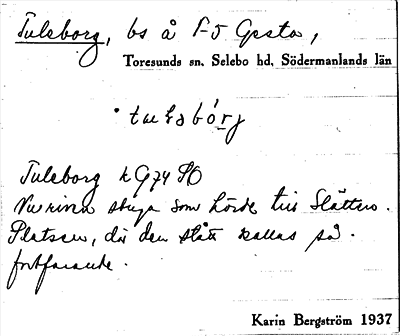 Tuleborg, bs å f-5 Gesta,
Toresunds sn. Selebo hd. Södermanlands län
Tuleborg k G74 SO
stuga som hörde till Slätten.
Platsen, där den stått kallas så
fortfarande.
Karin Bergström 1937